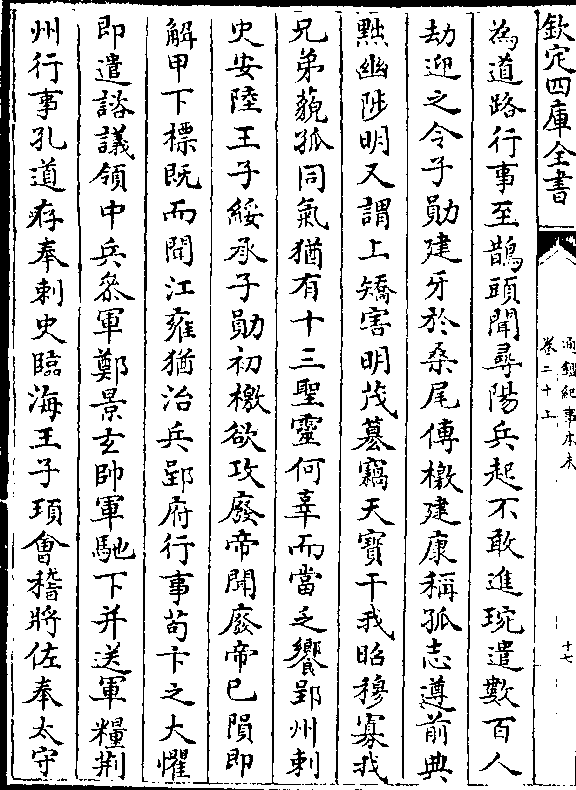 欽定四庫全書
通鑑紀事本末
卷二十上
十七
為道路行事至鵲頭聞尋陽兵起不敢進琬遣數百人
劫迎之令子勛建牙於桑尾傳檄建康稱孤志遵前典
黜幽陟明又謂上矯害明茂篡竊天寶干我昭穆寡我
兄弟藐孤同氣猶有十三聖靈何辜而當乏饗郢州刺
史安陸王子綏承子勛初檄欲攻廢帝聞廢帝已隕即
解甲下標既而聞江雍猶治兵郢府行事苟卞之大懼
即遣諮議領中兵叅軍鄭景玄帥軍馳下并送軍糧荆
州行事孔道存奉刺史臨海王子頊會稽將佐奉太守